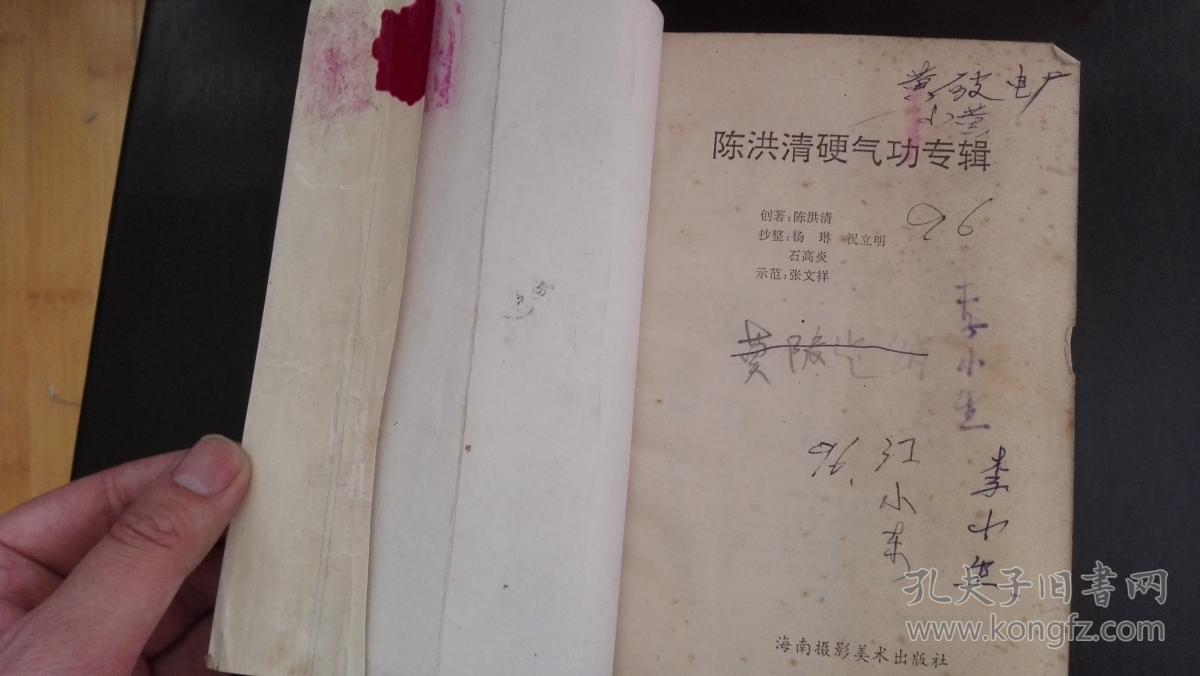 黄陂电厂
小黄
陈洪清硬气功专辑
创著:陈洪清
抄整:杨 琳 祝立明
石高炎
示范:张文祥
96
李小生
黄陂电
96.
江小东
李小生
孔夫子旧书网
www.kongfz.com
海南摄影美术出版社